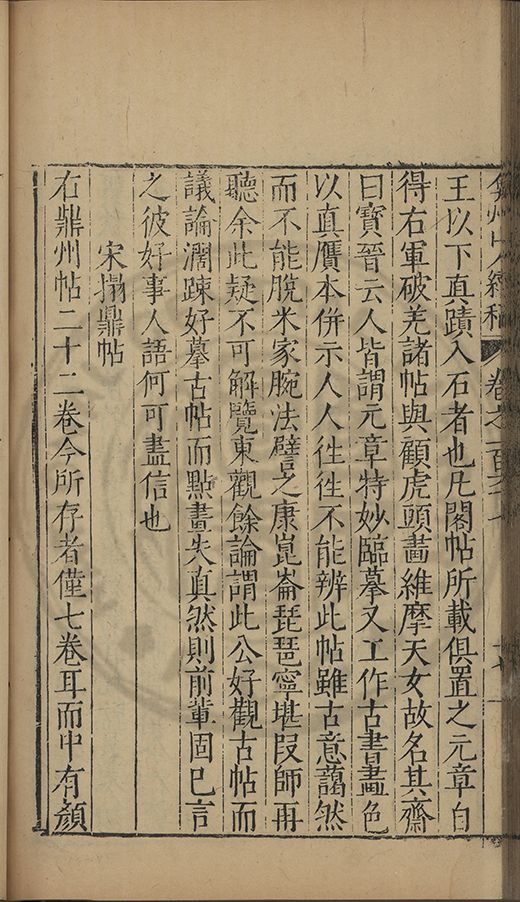 弇州山人續稿 卷之一百六十七
王以下真蹟入石者也凡閣帖所載俱置之元章自
得右軍破羌諸帖與顧虎頭畵維摩天女故名其齋
曰寶晉云人皆謂元章特妙臨摹又工作古書畵色
以真贋本併示人人徃徃不能辨此帖雖古意藹然
而不能脫米家腕法譬之康崑崙琵琶寧堪段師再
聽余此疑不可解覽東觀餘論謂此公好觀古帖而
議論濶踈好摹古帖而點畫失真然則前輩固已言
之彼好事人語何可盡信也
宋搨鼎帖
右鼎州帖二十二卷今所存者僅七卷耳而中有顏